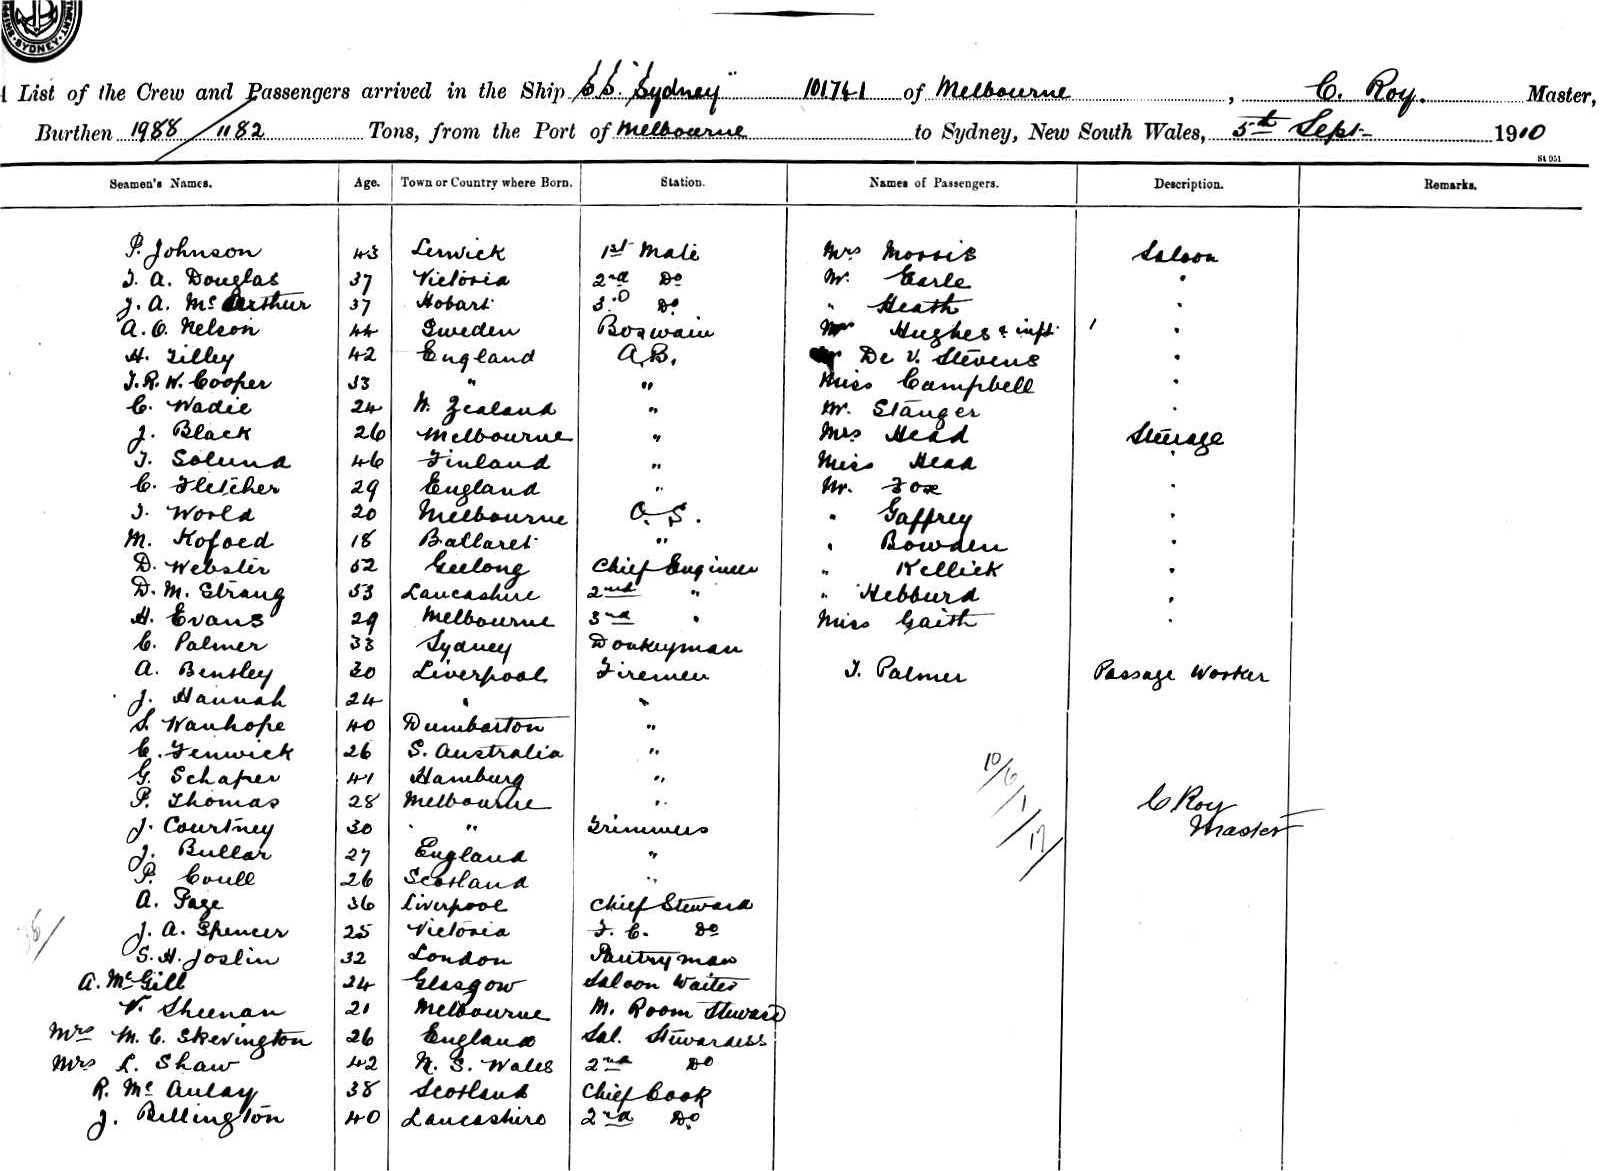 SYDNEY
A List of the Crew and Passengers arrived in the Ship S.S. "Sydney" 101741 of Melbourne, C. Roy. Master,
Burthen 1988 / 1182 Tons, from the Port of Melbourne to Sydney, New South Wales, 5th Sept 1910
St 951
Seamen's Names. Age. Town or Country where Born. Station. Names of Passengers. Description. Remarks.
P. Johnson 43 Lerwick 1st Mate Mrs Morris Saloon
T. A. Douglas 37 Victoria 2nd Do Mr. Earle "
J. A. McArthur 37 Hobart 3rd Do " Heath "
A. O. Nelson 44 Sweden Boswain Mr Hughes & inft "
H. Tilley 42 England A.B. De V. Stevens "
T. R. W. Cooper 53 " " Miss Campbell "
C. Wadie 24 N. Zealand " Mr. Stanger "
J. Black 26 Melbourne " Mrs Head Steerage
T. Solund 46 Finland " Miss Head "
C. Fletcher 29 England " Mr. Fox "
T. World 20 Melbourne O. S. " Gaffrey "
M. Kofoed 18 Ballaret " " Bowden "
D. Webster 52 Geelong Chief Engineer " Kellick "
D. M. Strang 53 Lancashire 2nd " " Hebburd "
H. Evans 29 Melbourne 3rd " Miss Gaith "
C. Palmer 33 Sydney Donkeyman
A. Bensley 30 Liverpool Firemen T. Palmer Passage Worker
J. Hannah 24 " "
S. Wanhope 40 Dumbarton "
C. Fenwick 26 S. Australia "
G. Schaper 41 Hamburg "
P. Thomas 28 Melbourne "
10/6/1/17/
C Roy
Master
J. Courtney 30 " Trimmers
J. Bullar 27 England "
P. Coull 26 Scotland "
A. Page 36 Liverpool Chief Steward
J. A. Spencer 25 Victoria F. C. Do
S. H. Joslin 32 London Pantryman
A. McGill 24 Glasgow Saloon Waiter
V. Sheenan 21 Melbourne M. Room Steward
Mrs M. C. Skevington 26 England Sal. Stewardess
Mrs L. Shaw 42 N. S. Wales 2nd Do
R. McAulay 38 Scotland Chief Cook
J. Billington 40 Lancashire 2nd Do